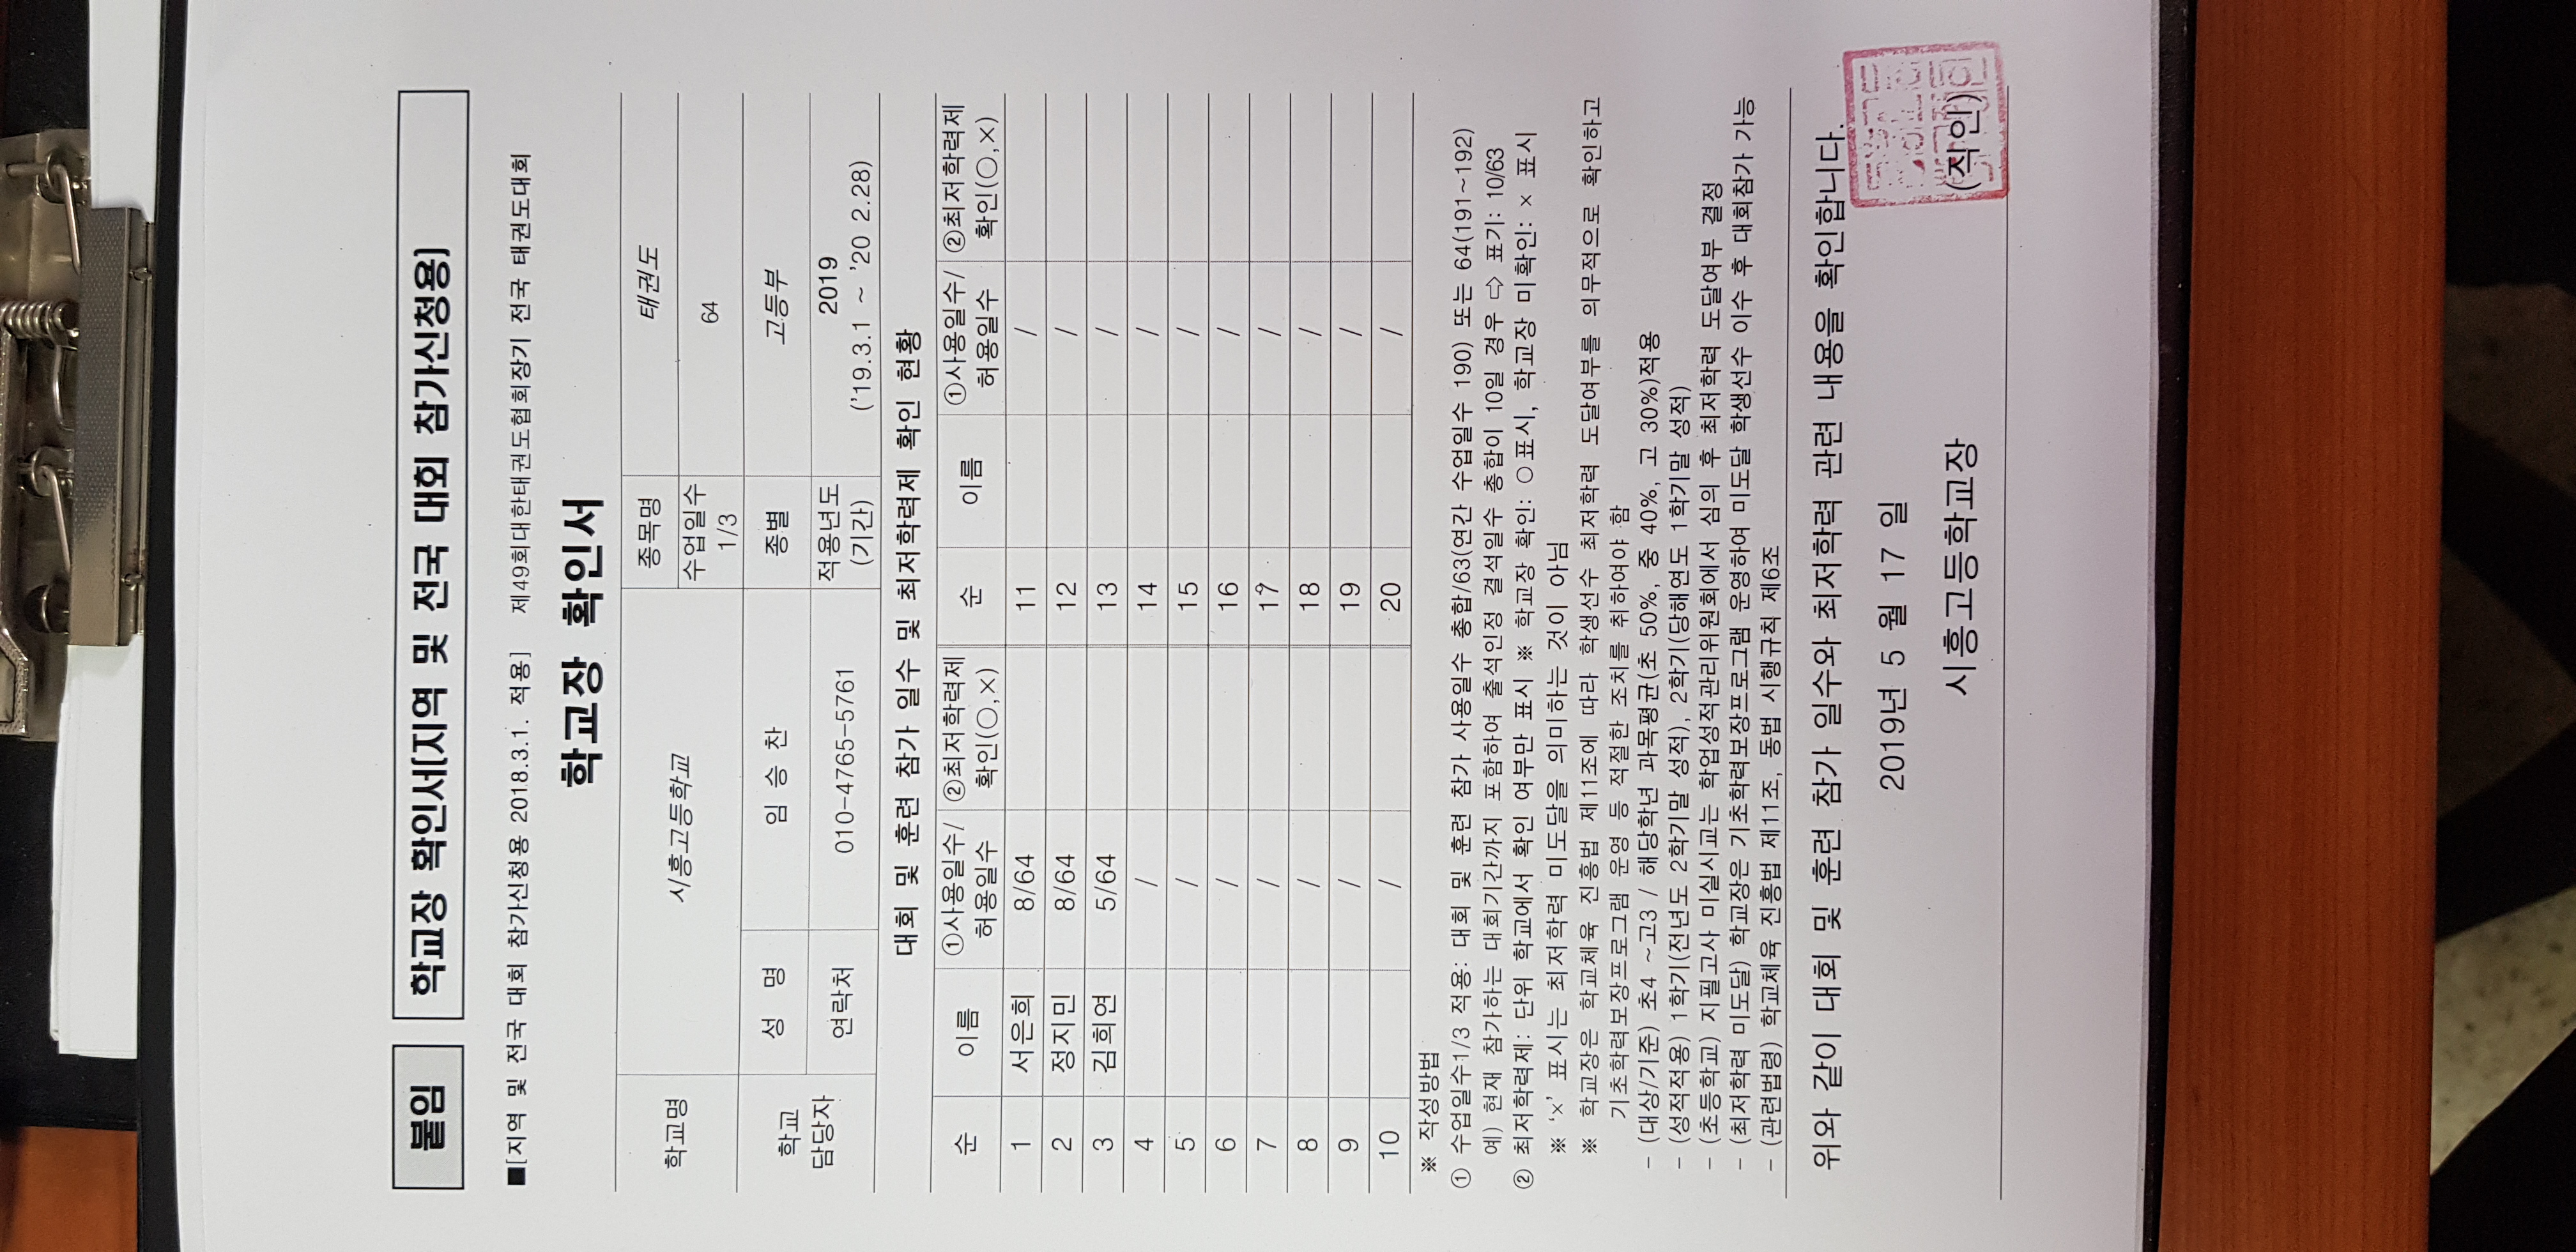 붙임 학교장 확인서[지역 및 전국 대회 참가신청용]
■[지역 및 전국 대회 참가신청용 2018.3.1. 적용] 제49회대한태권도협회장기 전국 태권도대회
학교장 확인서
학교명 시흥고등학교 종목명 태권도
수업일수 1/3 64
학교 담당자 성 명 임 승 찬 종별 고등부
연락처 010-4765-5761 적용년도 (기간) 2019 ('19.3.1 ~ '20 2.28)
대회 및 훈련 참가 일수 및 최저학력제 확인 현황
순 이름 ①사용일수/허용일수 ②최저학력제 확인(○,×) 순 이름 ①사용일수/허용일수 ②최저학력제 확인(○,×)
1 서은희 8/64 11 /
2 정지민 8/64 12 /
3 김희연 5/64 13 /
4 / 14 /
5 / 15 /
6 / 16 /
7 / 17 /
8 / 18 /
9 / 19 /
10 / 20 /
※ 작성방법
① 수업일수1/3 적용: 대회 및 훈련 참가 사용일수 총합/63(연간 수업일수 190) 또는 64(191~192)
예) 현재 참가하는 대회기간까지 포함하여 출석인정 결석일수 총합이 10일 경우 ⇨ 표기: 10/63
② 최저학력제: 단위 학교에서 확인 여부만 표시 ※ 학교장 확인: ○표시, 학교장 미확인: × 표시
※ '×' 표시는 최저학력 미도달을 의미하는 것이 아님
※ 학교장은 학교체육 진흥법 제11조에 따라 학생선수 최저학력 도달여부를 의무적으로 확인하고
기초학력보장프로그램 운영 등 적절한 조치를 취하여야 함
- (대상/기준) 초4 ~고3 / 해당학년 과목평균(초 50%, 중 40%, 고 30%)적용
- (성적적용) 1학기(전년도 2학기말 성적), 2학기(당해연도 1학기말 성적)
- (초등학교) 지필고사 미실시교는 학업성적관리위원회에서 심의 후 최저학력 도달여부 결정
- (최저학력 미도달) 학교장은 기초학력보장프로그램 운영하여 미도달 학생선수 이수 후 대회참가 가능
- (관련법령) 학교체육 진흥법 제11조, 동법 시행규칙 제6조
위와 같이 대회 및 훈련 참가 일수와 최저학력 관련 내용을 확인합니다.
2019년 5 월 17 일
시흥고등학교장 (직인)